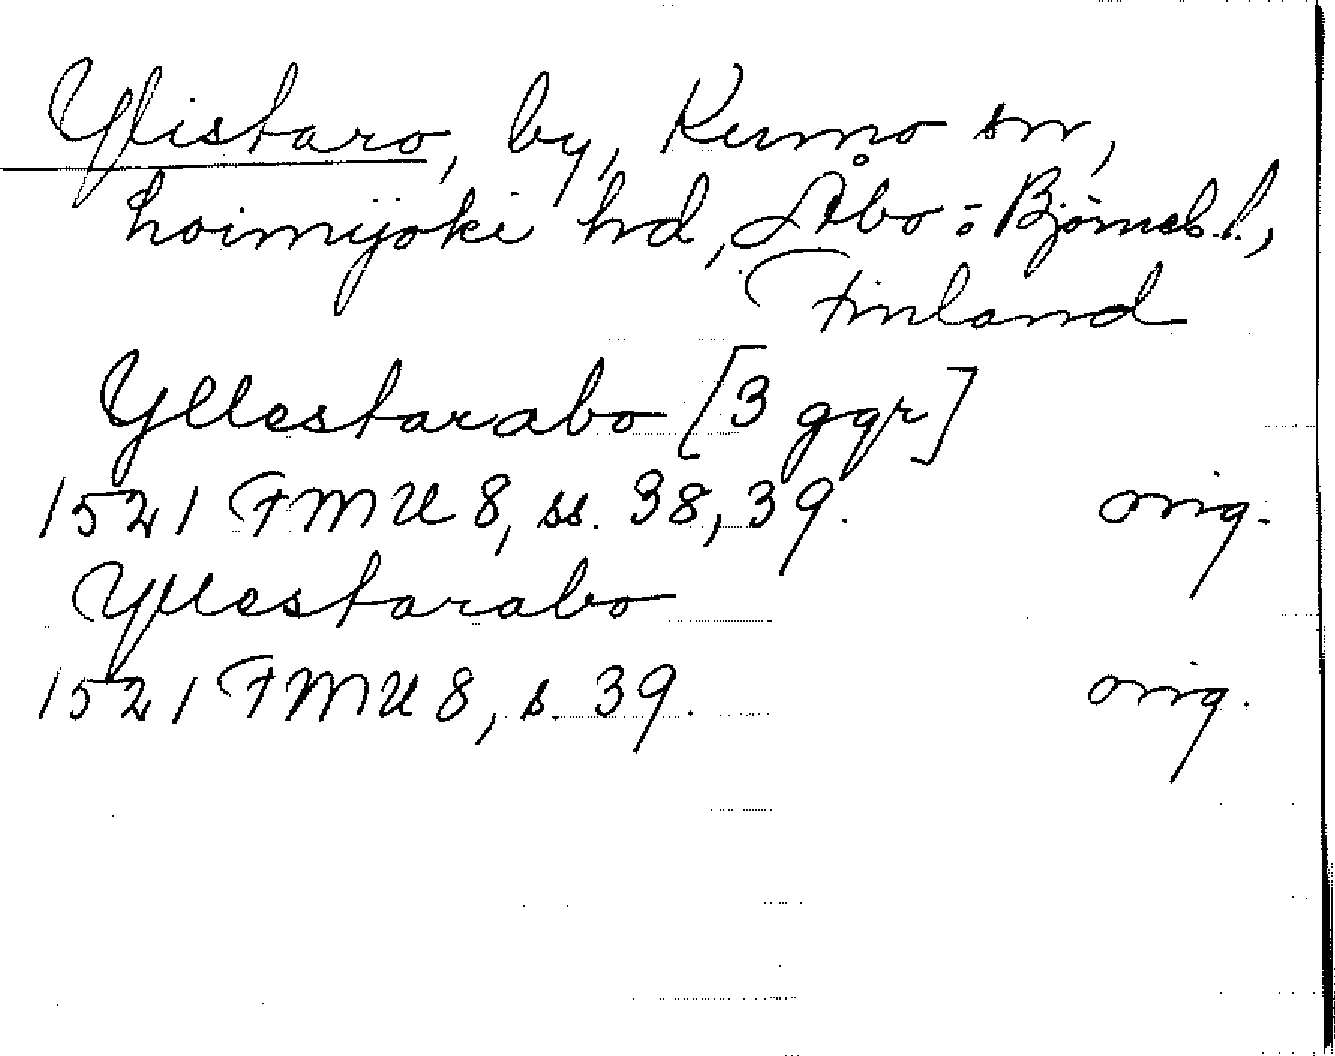 Ylistaro, by, Kumo sn,
Loimijoki hd, Åbo = Björneb. l.,
Finland
Yllestarabo [3 ggr]
1521 FMU 8, ss. 38, 39. orig.
Yllestarabo
1521 FMU 8, s. 39. orig.